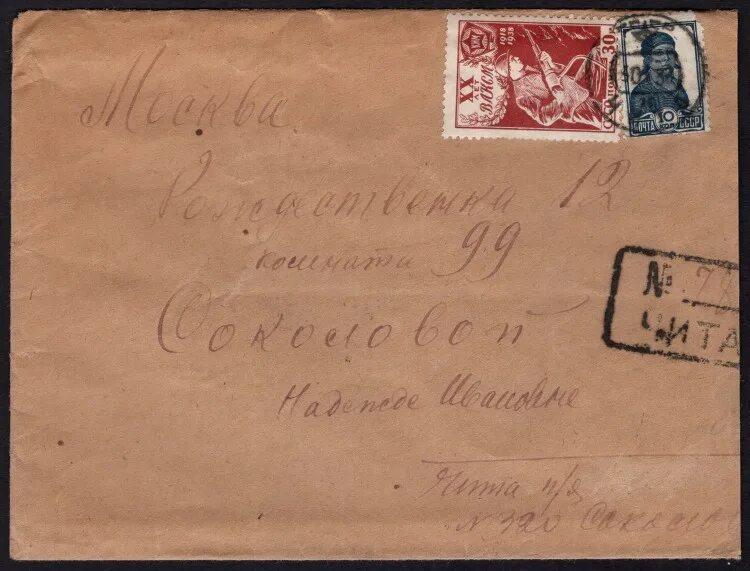 XX ЛЕТ ВЛКСМ
1918 1938
30
10
ПОЧТА СССР
Москва
Рождественка 12
комната 99
Соколовой
Надежде Ивановне
№ 78
ЧИТА
Чита п/я
№ 320 Соколо